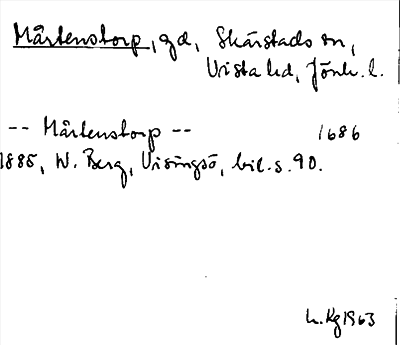 Mårtenstorp, gd, Skärstads sn,
Vista hd, Jönk. l.
-- Mårtenstorp -- 1686
1885, W. Berg, Visingsö, bil. s. 90.
L. Kg 1963